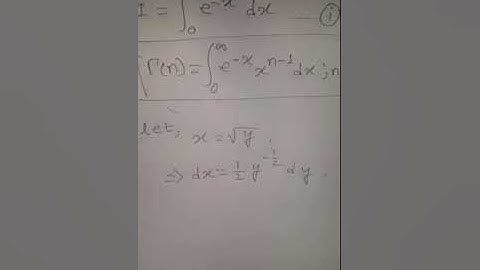 I = ∫₀ e^-x dx ... (i)
Γ(n) = ∫₀^∞ e^-x x^n-1 dx ; n
let, x = √y .
⇒ dx = 1/2 y^-1/2 dy .